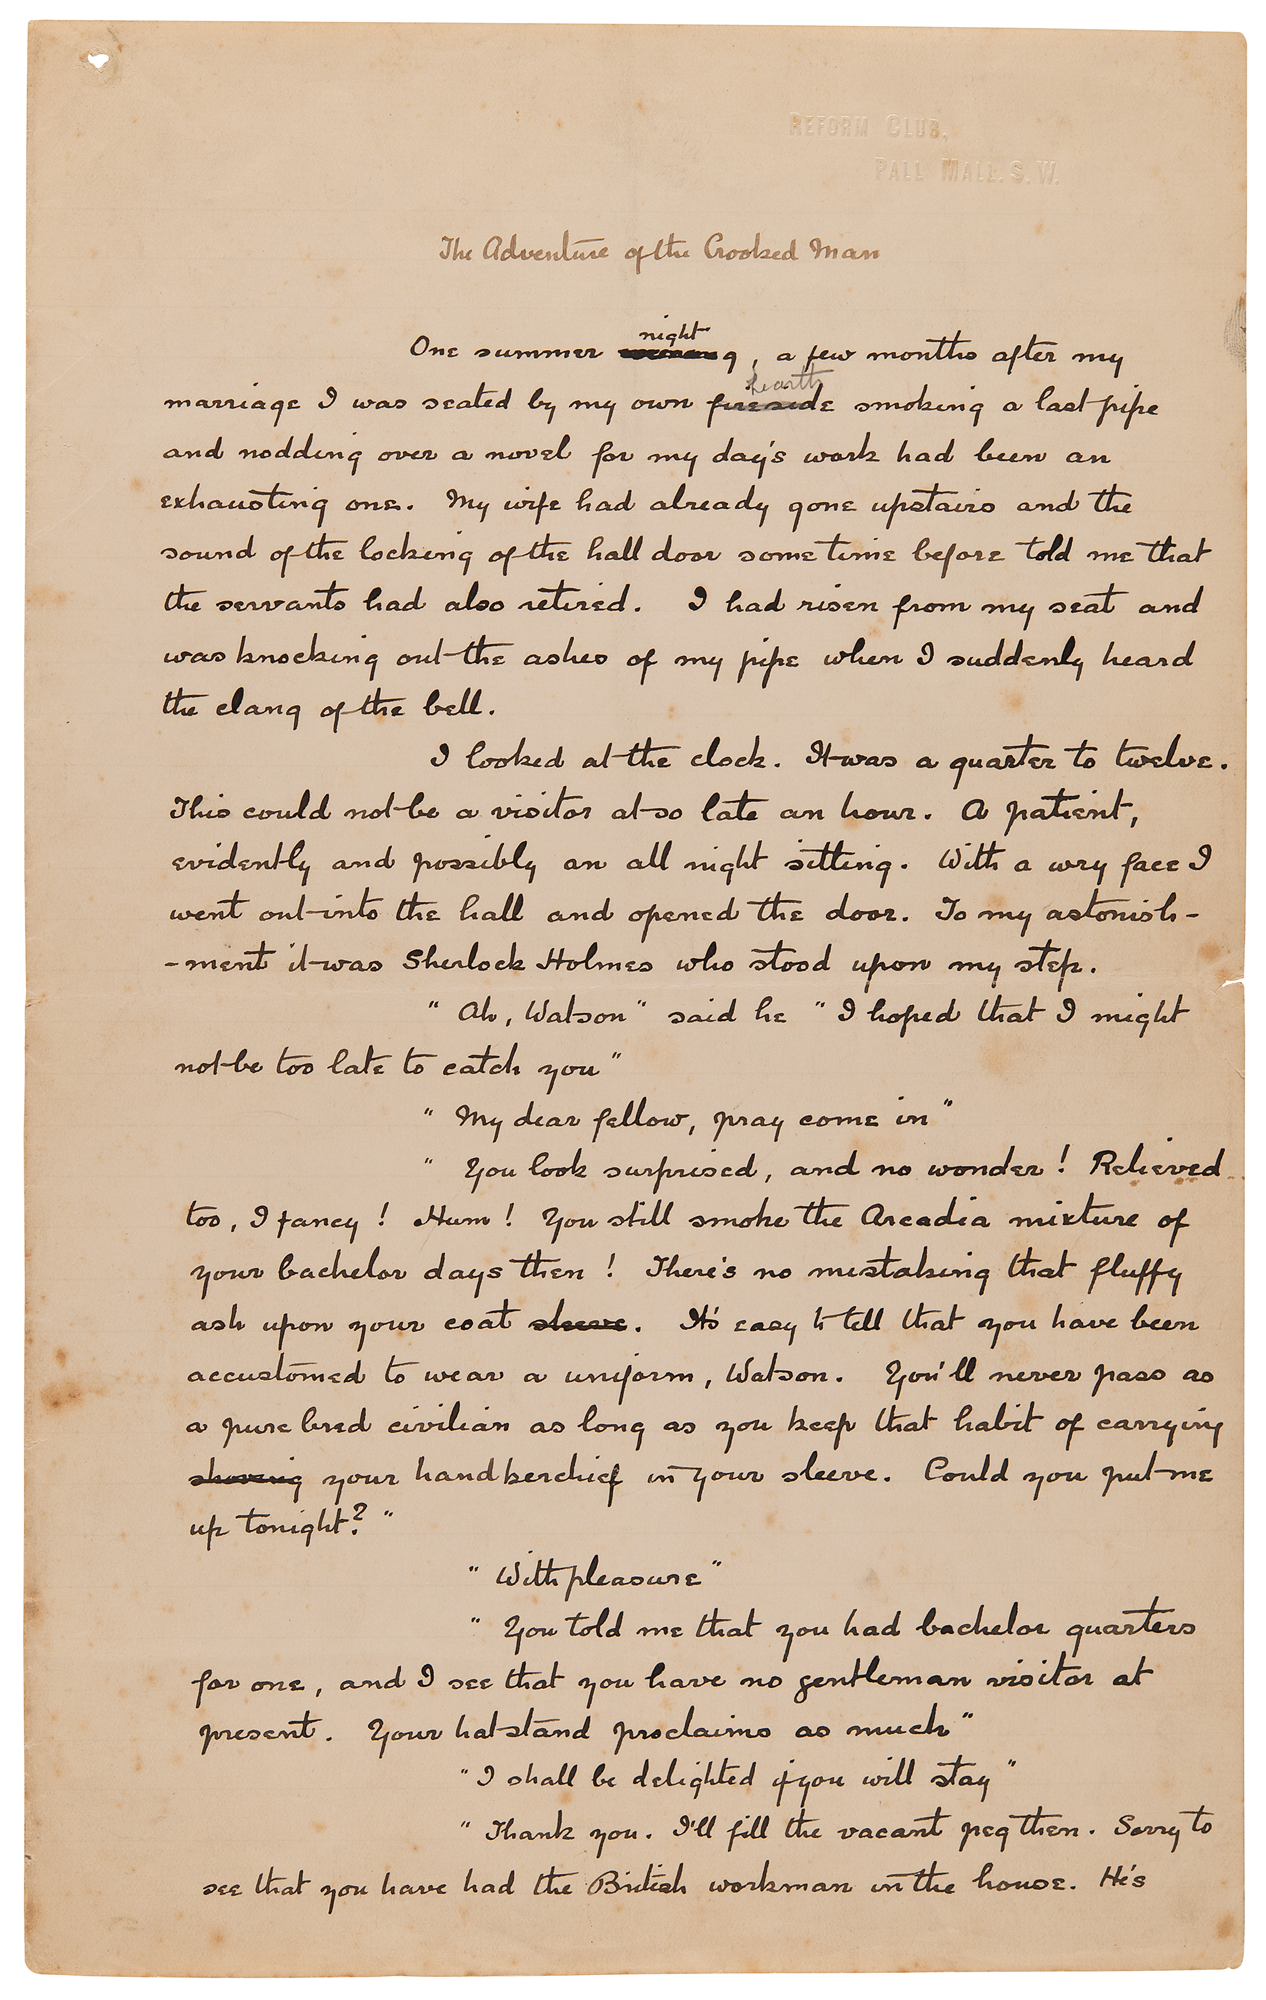 REFORM CLUB,
PALL MALL. S. W.
The Adventure of the Crooked Man
night
One summer evening, a few months after my
hearth
marriage I was seated by my own fireside smoking a last pipe
and nodding over a novel for my day's work had been an
exhausting one. My wife had already gone upstairs and the
sound of the locking of the hall door some time before told me that
the servants had also retired. I had risen from my seat and
was knocking out the ashes of my pipe when I suddenly heard
the clang of the bell.
I looked at the clock. It was a quarter to twelve.
This could not be a visitor at so late an hour. A patient,
evidently and possibly an all night sitting. With a wry face I
went out into the hall and opened the door. To my astonish-
-ment it was Sherlock Holmes who stood upon my step.
"Ah, Watson" said he "I hoped that I might
not be too late to catch you"
"My dear fellow, pray come in"
"You look surprised, and no wonder! Relieved
too, I fancy! Hum! You still smoke the Arcadia mixture of
your bachelor days then! There's no mistaking that fluffy
ash upon your coat sleeve. It's easy to tell that you have been
accustomed to wear a uniform, Watson. You'll never pass as
a pure bred civilian as long as you keep that habit of carrying
shoving your handkerchief in your sleeve. Could you put me
up tonight?"
"With pleasure"
"You told me that you had bachelor quarters
for one, and I see that you have no gentleman visitor at
present. Your hat-stand proclaims as much"
"I shall be delighted if you will stay"
"Thank you. I'll fill the vacant peg then. Sorry to
see that you have had the British workman in the house. He's